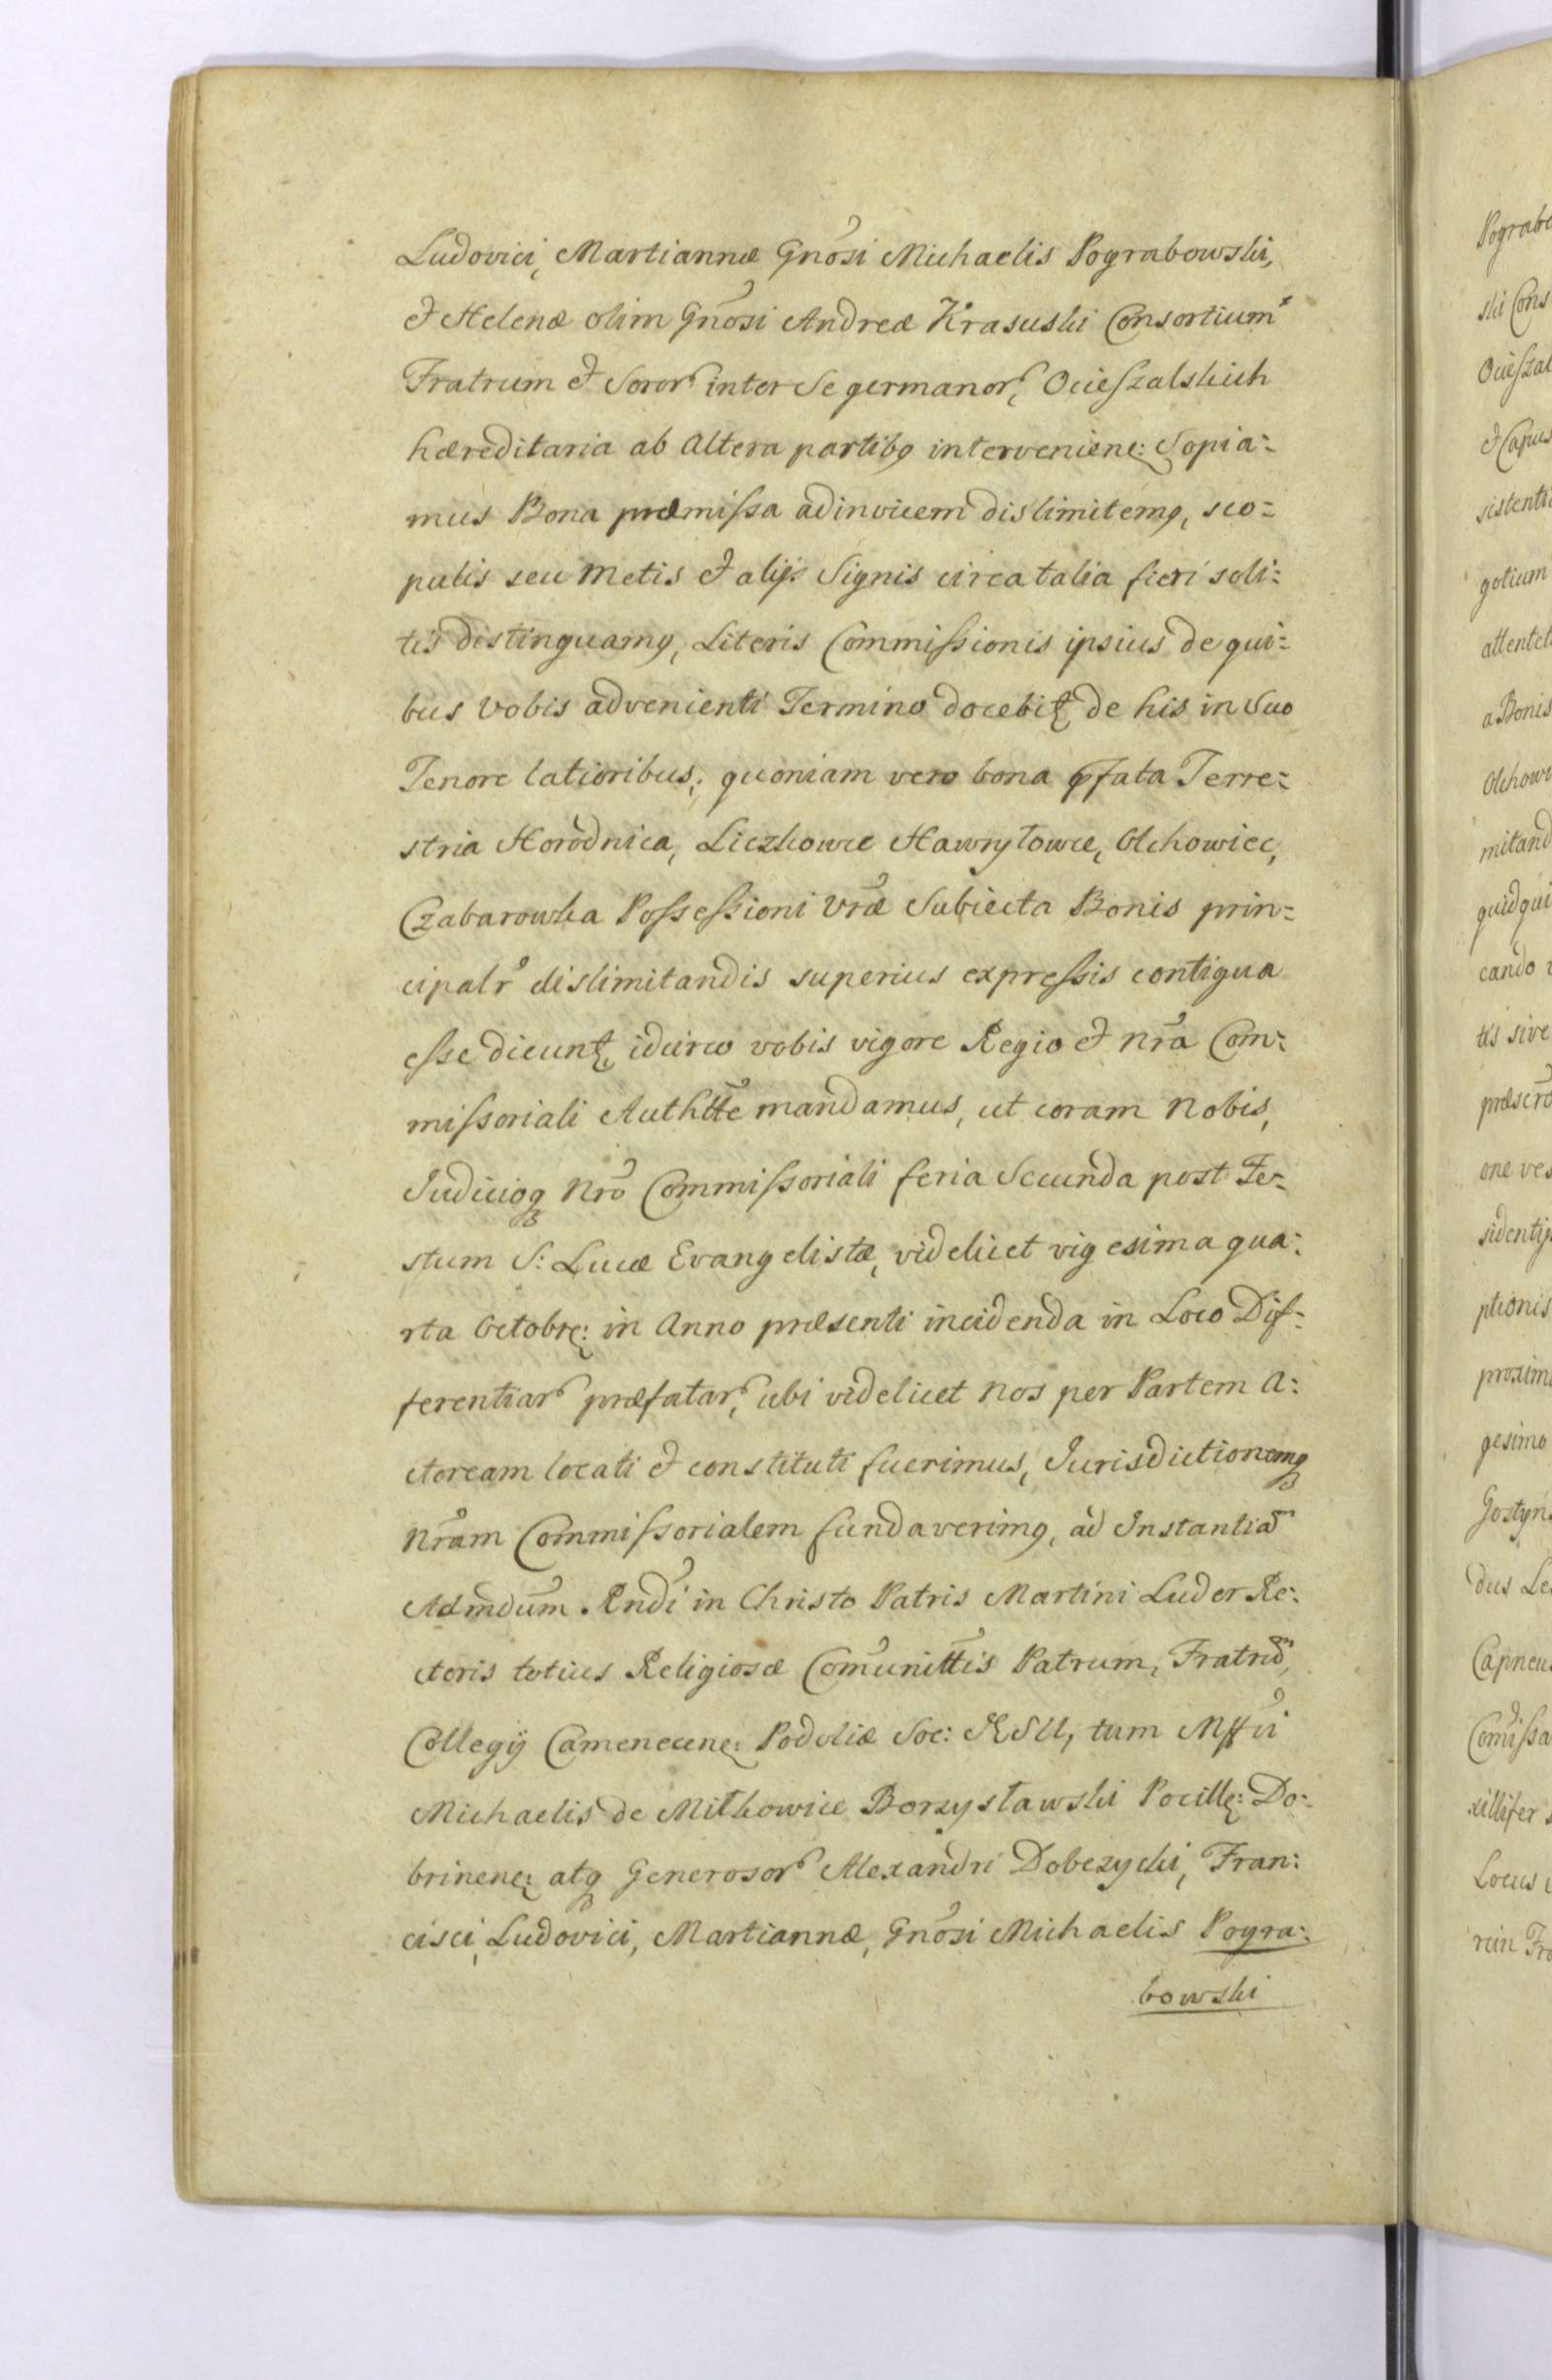 Ludovici, Martiannæ Gnõsi Michaelis Pograbowski,
et Helenæ olim Gnõsi Andreæ Krasuski Consortium
Fratrum et Soror inter Se germanor, Ocieſzalskich
hæreditaria ab Altera partibꝯ intervenieñ: Sopia=
mus Bona præmiſsa adinvicem dislimitemꝯ, sco=
pulis seu Metis et alijs Signis circa talia fieri soli=
tis distinguamꝯ, Literis Commiſsionis ipsius de qui=
bus Vobis advenienti Termino docebitꝭ de his in Suo
Tenore latioribus; quoniam vero bona pfata Terre=
stria Horodnica, Liczkowce Hawryłowce, Olchowiec,
Czabarowka Poſseſsioni Vræ Subiecta Bonis prin=
cipalr dislimitandis superius expreſsis contigua
eſse dicuntꝭ idcirco vobis vigore Regio et nra Com=
miſsoriali Authtte mandamus, ut coram Nobis,
Judicioqꝫ Nro Commiſsoriali feria Secunda post Fe=
stum S: Lucæ Evangelistæ, videlicet vigesima qua=
rta Octobrꝭ: in Anno præsenti incidenda in Loco Dif=
ferentiar præfatar, ubi videlicet nos per Partem A=
ctoream locati et constituti fuerimus, Jurisdictionemqꝫ
Nram Commiſsorialem fundaverimꝯ, ad Instantiã
Admdum Rndi in Christo Patris Martini Luder Re=
ctoris totius Religiosæ Comunittis Patrum, Fratrũ,
Collegij Camenecenꝭ: Podoliæ Soc: JESU, tum Mffi
Michaelis de Miłkowice Borzysławski Pocillꝭ: Do=
brinenꝭ: atqꝫ Generosor Alexandri Dobczycki, Fran=
cisci, Ludovici, Martiannæ, Gnõsi Michaelis Pogra=
bowski
Pograb
ski Cons
Ocieſzal
et Capus
sistenti
gotium
attentet
a Bonis
Olchowi
mitand
quidqui
cando
tis sive
præscrõ
one ves
sidentij
ptionis
proxim
gesimo
Gostyn
dus Le
Capneu
Comiſsa
xillifer
Locus
rum Fra